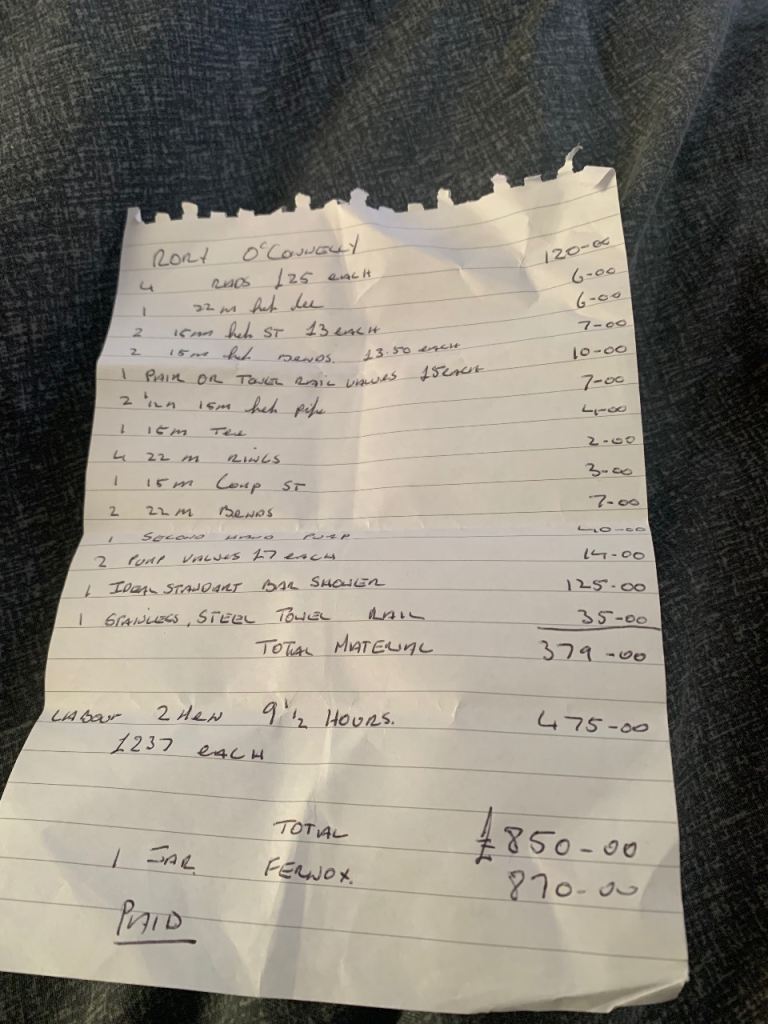 RORY O'CONNELLY
4 RADS £25 EACH 120-00
1 22m hep tee 6-00
2 15mm hep ST £3 EACH 6-00
2 15m hep BENDS. £3.50 EACH 7-00
1 PAIR OR TOWEL RAIL VALVES £5 EACH 10-00
2 1/2m 15m hep pipe 7-00
1 15m Tee 4-00
4 22 m RINGS 2-00
1 15m Coup ST 3-00
2 22 m BENDS 7-00
1 SECOND HAND PUMP 40-00
2 PUMP VALVES £7 EACH 14-00
1 IDEAL STANDART BAR SHOWER 125-00
1 STAINLESS, STEEL TOWEL RAIL 35-00
TOTAL MATERIAL 379-00
LABOUR 2 MEN 9 1/2 HOURS. 475-00
£237 EACH
TOTAL £850-00
1 JAR FERNOX. 870-00
PAID